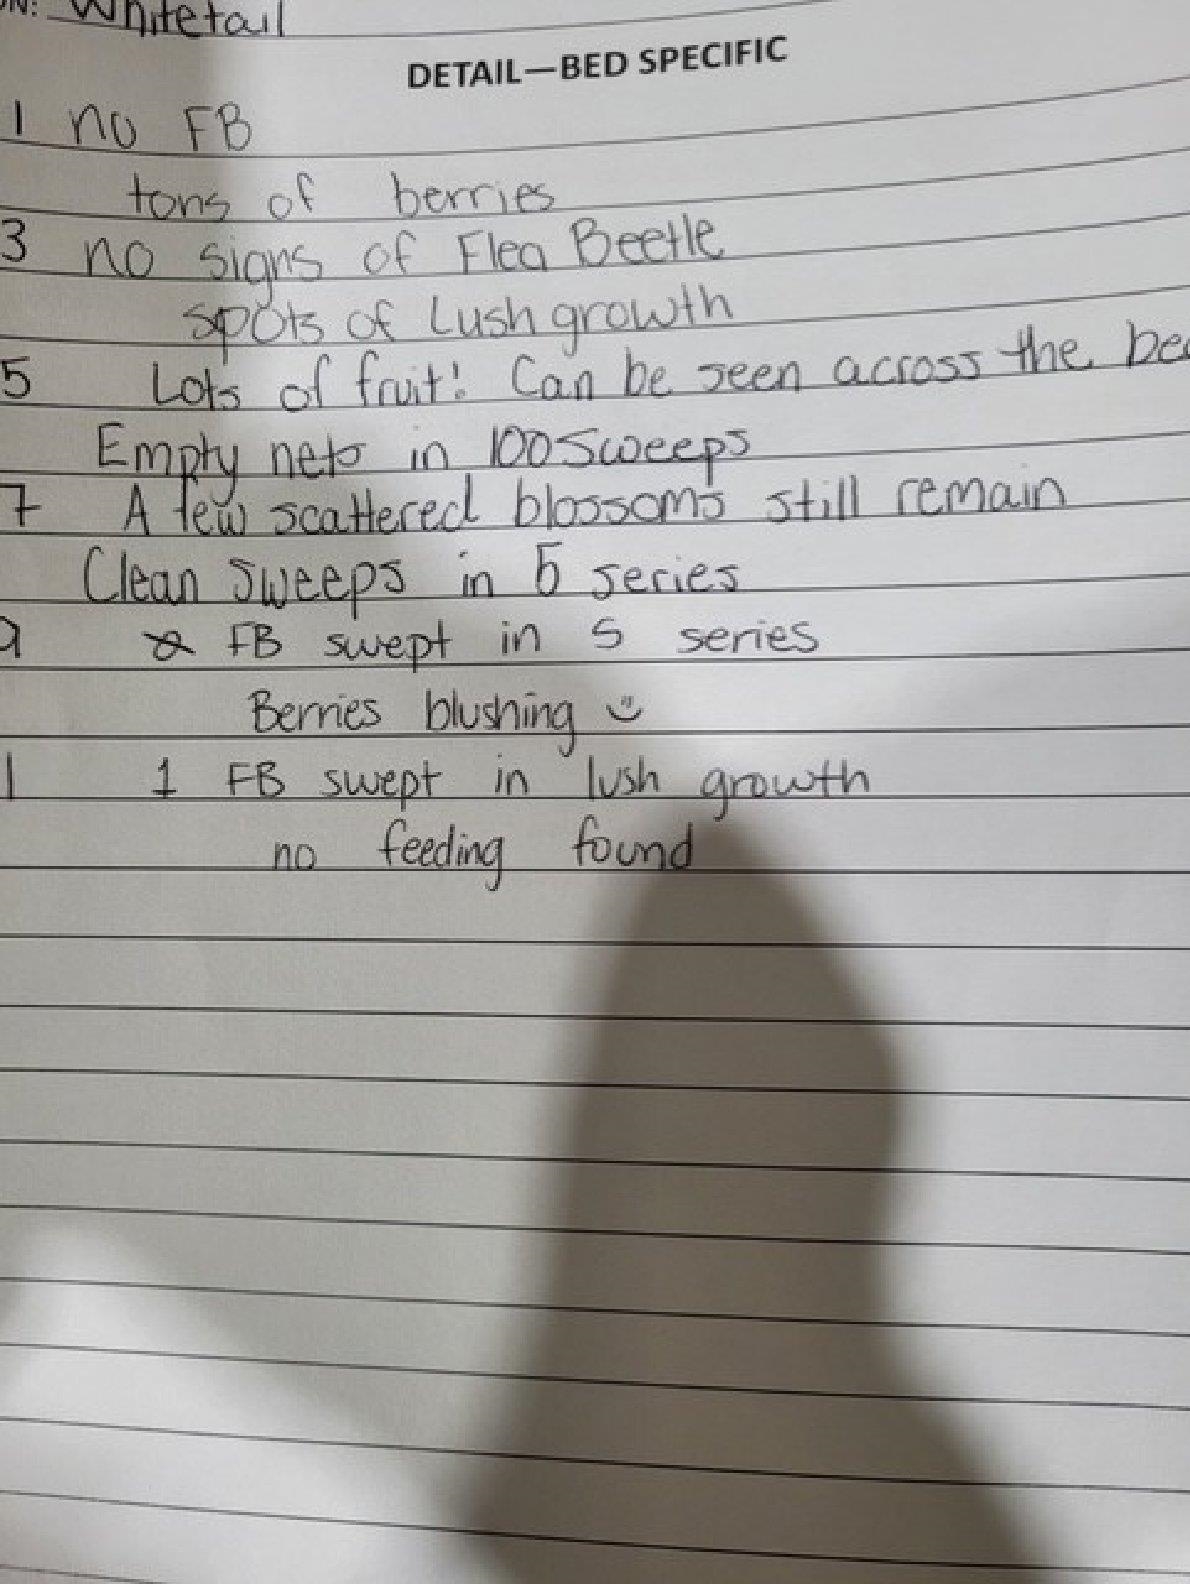 ON: Whitetail
DETAIL—BED SPECIFIC
1 no FB
tons of berries
3 no signs of Flea Beetle
spots of Lush growth
5 Lots of fruit! Can be seen across the bed
Empty nets in 100 Sweeps
7 A few scattered blossoms still remain
Clean Sweeps in 5 series
9 FB swept in 5 series
Berries blushing
1 1 FB swept in lush growth
no feeding found